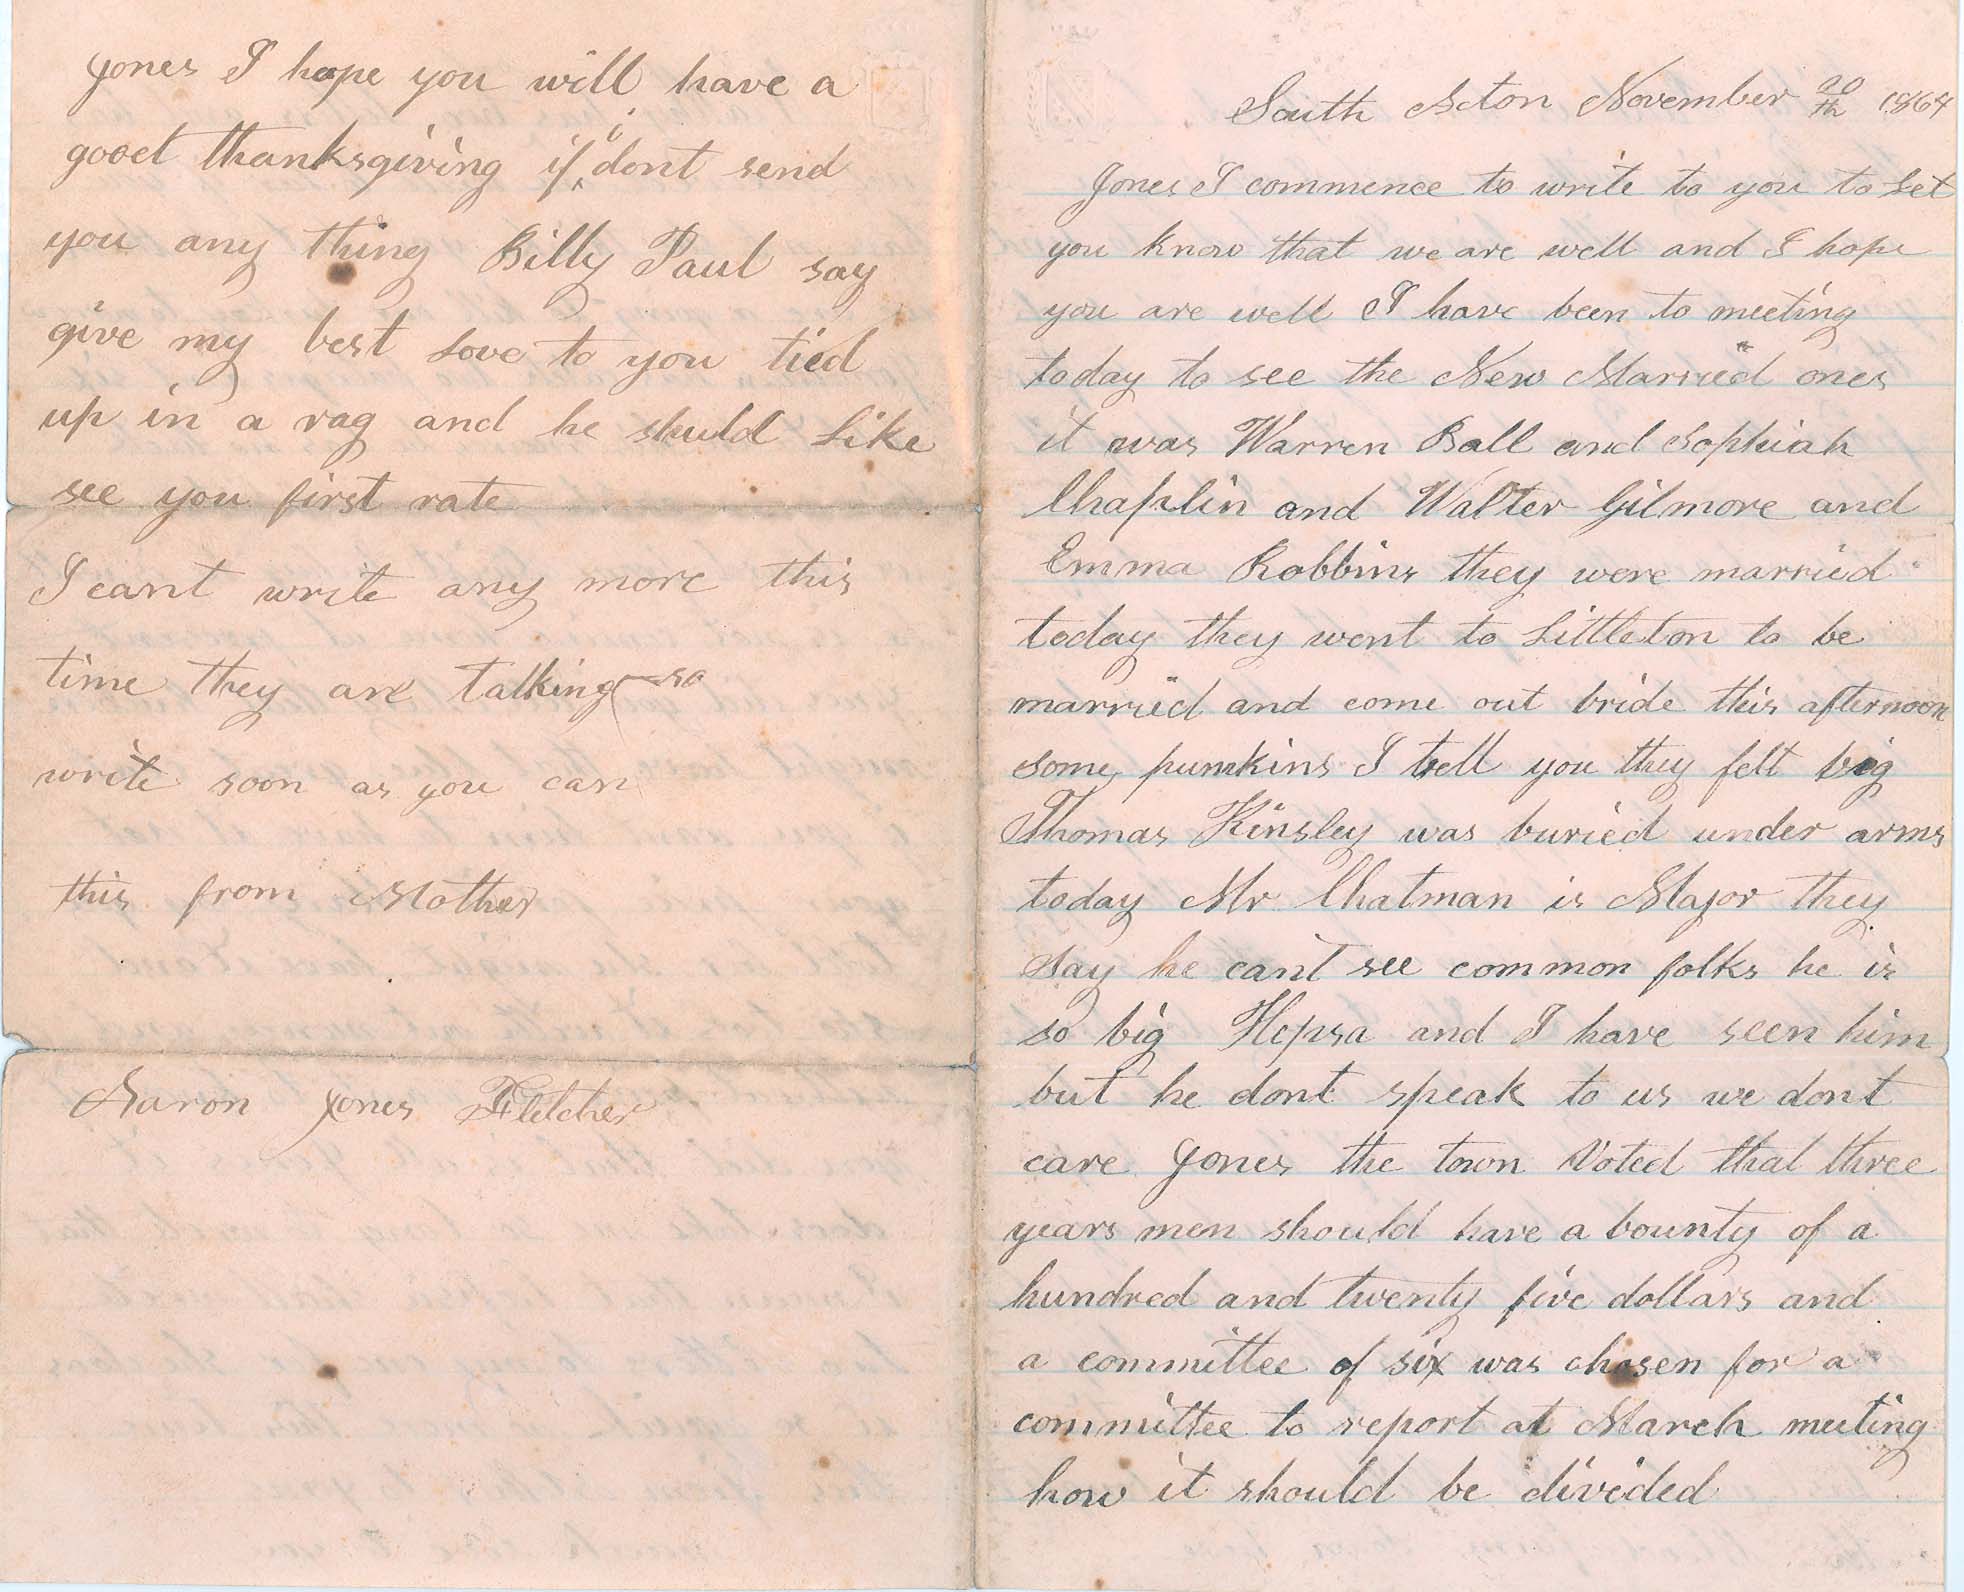 South Acton November 20th 1864
Jones I commence to write to you to Let
you know that we are well and I hope
you are well I have been to meeting
today to see the New Married ones
it was Warren Ball and Sophiah
Chaplin and Walter Gilmore and
Emma Robbins they were married
today they went to Littleton to be
married and come out bride this afternoon
some pumkins I tell you they felt big
Thomas Kinsley was buried under arms
today Mr Chatman is Major they
say he cant see common folks he is
so big Hepsa and I have seen him
but he dont speak to us we dont
care Jones the town Voted that three
years men should have a bounty of a
hundred and twenty five dollars and
a committee of six was chosen for a
committee to report at March meeting
how it should be divided
Jones I hope you will have a
good thanksgiving if i dont send
you any thing Billy Paul say
give my best Love to you tied
up in a rag and he shuld Like
see you first rate
I cant write any more this
time they are talking so
write soon as you can
this from Mother
Aaron Jones Fletcher